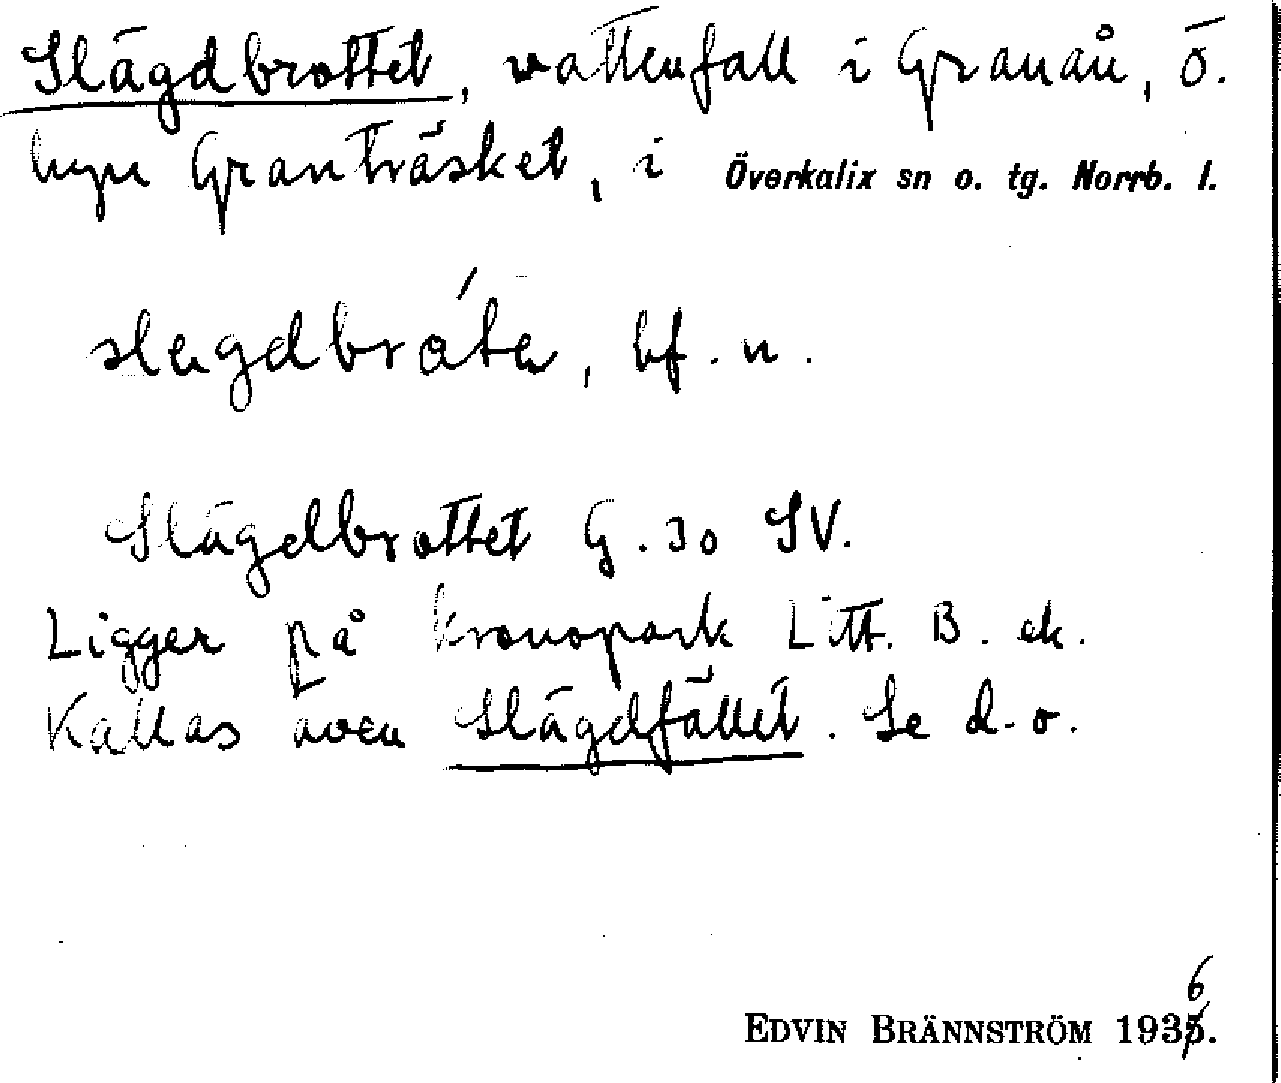 Slägdbrottet, vattenfall i Granån, ö.
byn Granträsket, i Överkalix sn o. tg. Norrb. l.
slagdbråta, bf. n.
Slägdbrottet G. 30 SV.
Ligger på kronopark Litt. B. ek.
Kallas även Slägdfallet. Se d. o.
6
EDVIN BRÄNNSTRÖM 1935.